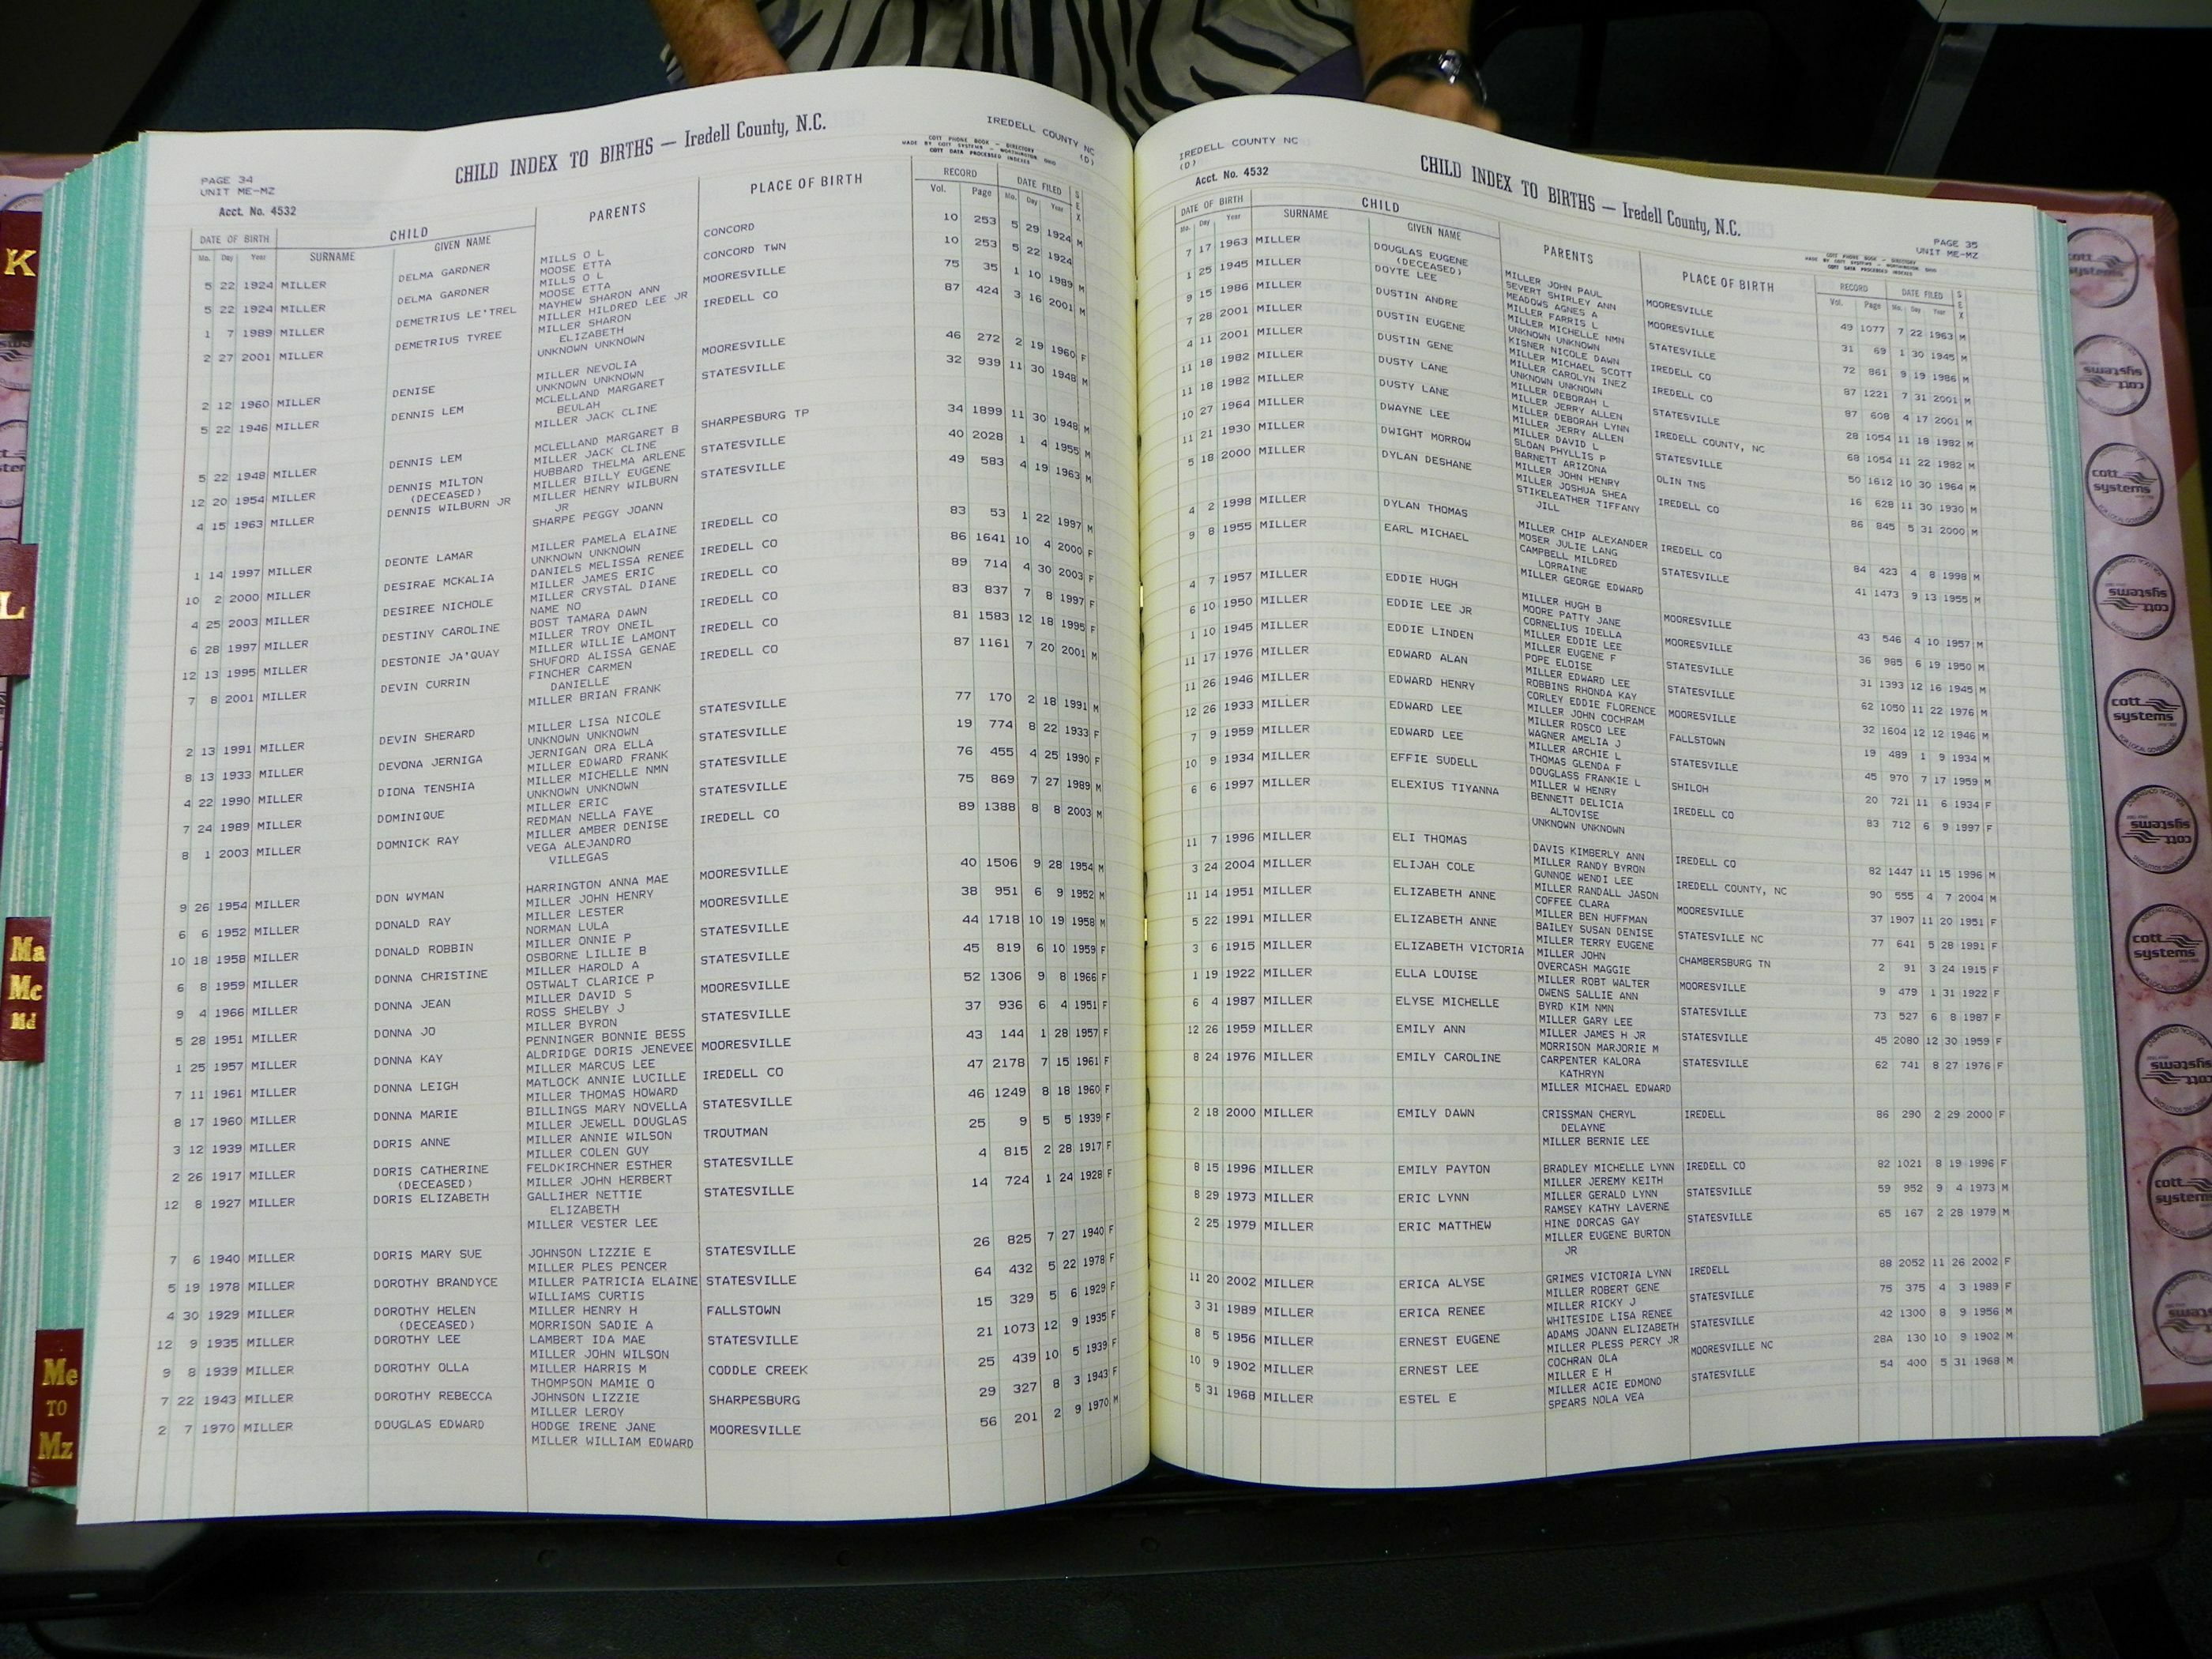 PAGE 34
UNIT ME-MZ
Acct. No. 4532
CHILD INDEX TO BIRTHS — Iredell County, N.C.
IREDELL COUNTY NC
(D)
COTT PHONE BOOK - DIRECTORY
MADE BY COTT SYSTEMS - WORTHINGTON OHIO
COTT DATA PROCESSED INDEXES
DATE OF BIRTH CHILD PARENTS PLACE OF BIRTH RECORD DATE FILED SEX
Mo. Day Year SURNAME GIVEN NAME Vol. Page Mo. Day Year
5 22 1924 MILLER DELMA GARDNER MILLS O L CONCORD 10 253 5 29 1924 M
MOOSE ETTA
5 22 1924 MILLER DELMA GARDNER MILLS O L CONCORD TWN 10 253 5 22 1924
MOOSE ETTA
1 7 1989 MILLER DEMETRIUS LE'TREL MAYHEW SHARON ANN MOORESVILLE 75 35 1 10 1989 M
MILLER HILDRED LEE JR
2 27 2001 MILLER DEMETRIUS TYREE MILLER SHARON IREDELL CO 87 424 3 16 2001 M
ELIZABETH
UNKNOWN UNKNOWN
2 12 1960 MILLER DENISE MILLER NEVOLIA MOORESVILLE 46 272 2 19 1960 F
UNKNOWN UNKNOWN
5 22 1946 MILLER DENNIS LEM MCLELLAND MARGARET STATESVILLE 32 939 11 30 1948 M
BEULAH
MILLER JACK CLINE
5 22 1948 MILLER DENNIS LEM MCLELLAND MARGARET B SHARPESBURG TP 34 1899 11 30 1948 M
MILLER JACK CLINE
12 20 1954 MILLER DENNIS MILTON HUBBARD THELMA ARLENE STATESVILLE 40 2028 1 4 1955 M
(DECEASED) MILLER BILLY EUGENE
4 15 1963 MILLER DENNIS WILBURN JR MILLER HENRY WILBURN STATESVILLE 49 583 4 19 1963 M
JR
SHARPE PEGGY JOANN
1 14 1997 MILLER DEONTE LAMAR MILLER PAMELA ELAINE IREDELL CO 83 53 1 22 1997 M
UNKNOWN UNKNOWN
10 2 2000 MILLER DESIRAE MCKALIA DANIELS MELISSA RENEE IREDELL CO 86 1641 10 4 2000 F
MILLER JAMES ERIC
4 25 2003 MILLER DESIREE NICHOLE MILLER CRYSTAL DIANE IREDELL CO 89 714 4 30 2003 F
NAME NO
6 28 1997 MILLER DESTINY CAROLINE BOST TAMARA DAWN IREDELL CO 83 837 7 8 1997 F
MILLER TROY ONEIL
12 13 1995 MILLER DESTONIE JA'QUAY MILLER WILLIE LAMONT IREDELL CO 81 1583 12 18 1995 F
SHUFORD ALISSA GENAE
7 8 2001 MILLER DEVIN CURRIN FINCHER CARMEN IREDELL CO 87 1161 7 20 2001 M
DANIELLE
MILLER BRIAN FRANK
2 13 1991 MILLER DEVIN SHERARD MILLER LISA NICOLE STATESVILLE 77 170 2 18 1991 M
UNKNOWN UNKNOWN
8 13 1933 MILLER DEVONA JERNIGA JERNIGAN ORA ELLA STATESVILLE 19 774 8 22 1933 F
MILLER EDWARD FRANK
4 22 1990 MILLER DIONA TENSHIA MILLER MICHELLE NMN STATESVILLE 76 455 4 25 1990 F
UNKNOWN UNKNOWN
7 24 1989 MILLER DOMINIQUE MILLER ERIC STATESVILLE 75 869 7 27 1989 M
REDMAN NELLA FAYE
8 1 2003 MILLER DOMNICK RAY MILLER AMBER DENISE IREDELL CO 89 1388 8 8 2003 M
VEGA ALEJANDRO
VILLEGAS
9 26 1954 MILLER DON WYMAN HARRINGTON ANNA MAE MOORESVILLE 40 1506 9 28 1954 M
MILLER JOHN HENRY
6 6 1952 MILLER DONALD RAY MILLER LESTER MOORESVILLE 38 951 6 9 1952 M
NORMAN LULA
10 18 1958 MILLER DONALD ROBBIN MILLER ONNIE P STATESVILLE 44 1718 10 19 1958 M
OSBORNE LILLIE B
6 8 1959 MILLER DONNA CHRISTINE MILLER HAROLD A STATESVILLE 45 819 6 10 1959 F
OSTWALT CLARICE P
9 4 1966 MILLER DONNA JEAN MILLER DAVID S MOORESVILLE 52 1306 9 8 1966 F
ROSS SHELBY J
5 28 1951 MILLER DONNA JO MILLER BYRON STATESVILLE 37 936 6 4 1951 F
PENNINGER BONNIE BESS
1 25 1957 MILLER DONNA KAY ALDRIDGE DORIS JENEVEE MOORESVILLE 43 144 1 28 1957 F
MILLER MARCUS LEE
7 11 1961 MILLER DONNA LEIGH MATLOCK ANNIE LUCILLE IREDELL CO 47 2178 7 15 1961 F
MILLER THOMAS HOWARD
8 17 1960 MILLER DONNA MARIE BILLINGS MARY NOVELLA STATESVILLE 46 1249 8 18 1960 F
MILLER JEWELL DOUGLAS
3 12 1939 MILLER DORIS ANNE MILLER ANNIE WILSON TROUTMAN 25 9 5 5 1939 F
MILLER COLEN GUY
2 26 1917 MILLER DORIS CATHERINE FELDKIRCHNER ESTHER STATESVILLE 4 815 2 28 1917 F
(DECEASED) MILLER JOHN HERBERT
12 8 1927 MILLER DORIS ELIZABETH GALLIHER NETTIE STATESVILLE 14 724 1 24 1928 F
ELIZABETH
MILLER VESTER LEE
7 6 1940 MILLER DORIS MARY SUE JOHNSON LIZZIE E STATESVILLE 26 825 7 27 1940 F
MILLER PLES PENCER
5 19 1978 MILLER DOROTHY BRANDYCE MILLER PATRICIA ELAINE STATESVILLE 64 432 5 22 1978 F
WILLIAMS CURTIS
4 30 1929 MILLER DOROTHY HELEN MILLER HENRY H FALLSTOWN 15 329 5 6 1929 F
(DECEASED) MORRISON SADIE A
12 9 1935 MILLER DOROTHY LEE LAMBERT IDA MAE STATESVILLE 21 1073 12 9 1935 F
MILLER JOHN WILSON
9 8 1939 MILLER DOROTHY OLLA MILLER HARRIS M CODDLE CREEK 25 439 10 5 1939 F
THOMPSON MAMIE O
7 22 1943 MILLER DOROTHY REBECCA JOHNSON LIZZIE SHARPESBURG 29 327 8 3 1943 F
MILLER LEROY
2 7 1970 MILLER DOUGLAS EDWARD HODGE IRENE JANE MOORESVILLE 56 201 2 9 1970 M
MILLER WILLIAM EDWARD
IREDELL COUNTY NC
(D)
Acct. No. 4532
CHILD INDEX TO BIRTHS — Iredell County, N.C.
PAGE 35
UNIT ME-MZ
COTT PHONE BOOK - DIRECTORY
MADE BY COTT SYSTEMS - WORTHINGTON OHIO
COTT DATA PROCESSED INDEXES
DATE OF BIRTH CHILD PARENTS PLACE OF BIRTH RECORD DATE FILED SEX
Mo. Day Year SURNAME GIVEN NAME Vol. Page Mo. Day Year
7 17 1963 MILLER DOUGLAS EUGENE MILLER JOHN PAUL MOORESVILLE 49 1077 7 22 1963 M
(DECEASED) SEVERT SHIRLEY ANN
1 25 1945 MILLER DOYTE LEE MEADOWS AGNES A MOORESVILLE 31 69 1 30 1945 M
MILLER FARRIS L
9 15 1986 MILLER DUSTIN ANDRE MILLER MICHELLE NMN STATESVILLE 72 861 9 19 1986 M
UNKNOWN UNKNOWN
7 28 2001 MILLER DUSTIN EUGENE KISNER NICOLE DAWN IREDELL CO 87 1221 7 31 2001 M
MILLER MICHAEL SCOTT
4 11 2001 MILLER DUSTIN GENE MILLER CAROLYN INEZ IREDELL CO 87 608 4 17 2001 M
UNKNOWN UNKNOWN
11 18 1982 MILLER DUSTY LANE MILLER DEBORAH L STATESVILLE 28 1054 11 18 1982 M
MILLER JERRY ALLEN
11 18 1982 MILLER DUSTY LANE MILLER DEBORAH LYNN IREDELL COUNTY, NC 68 1054 11 22 1982 M
MILLER JERRY ALLEN
10 27 1964 MILLER DWAYNE LEE MILLER DAVID L STATESVILLE 50 1612 10 30 1964 M
SLOAN PHYLLIS P
11 21 1930 MILLER DWIGHT MORROW BARNETT ARIZONA OLIN TNS 16 628 11 30 1930 M
MILLER JOHN HENRY
5 18 2000 MILLER DYLAN DESHANE MILLER JOSHUA SHEA IREDELL CO 86 845 5 31 2000 M
STIKELEATHER TIFFANY
JILL
4 2 1998 MILLER DYLAN THOMAS MILLER CHIP ALEXANDER IREDELL CO 84 423 4 8 1998 M
MOSER JULIE LANG
9 8 1955 MILLER EARL MICHAEL CAMPBELL MILDRED STATESVILLE 41 1473 9 13 1955 M
LORRAINE
MILLER GEORGE EDWARD
4 7 1957 MILLER EDDIE HUGH MILLER HUGH B MOORESVILLE 43 546 4 10 1957 M
MOORE PATTY JANE
6 10 1950 MILLER EDDIE LEE JR CORNELIUS IDELLA MOORESVILLE 36 985 6 19 1950 M
MILLER EDDIE LEE
1 10 1945 MILLER EDDIE LINDEN MILLER EUGENE F STATESVILLE 31 1393 12 16 1945 M
POPE ELOISE
11 17 1976 MILLER EDWARD ALAN MILLER EDWARD LEE STATESVILLE 62 1050 11 22 1976 M
ROBBINS RHONDA KAY
11 26 1946 MILLER EDWARD HENRY CORLEY EDDIE FLORENCE MOORESVILLE 32 1604 12 12 1946 M
MILLER JOHN COCHRAM
12 26 1933 MILLER EDWARD LEE MILLER ROSCO LEE FALLSTOWN 19 489 1 9 1934 M
WAGNER AMELIA J
7 9 1959 MILLER EDWARD LEE MILLER ARCHIE L STATESVILLE 45 970 7 17 1959 M
THOMAS GLENDA F
10 9 1934 MILLER EFFIE SUDELL DOUGLASS FRANKIE L SHILOH 20 721 11 6 1934 F
MILLER W HENRY
6 6 1997 MILLER ELEXIUS TIYANNA BENNETT DELICIA IREDELL CO 83 712 6 9 1997 F
ALTOVISE
UNKNOWN UNKNOWN
11 7 1996 MILLER ELI THOMAS DAVIS KIMBERLY ANN IREDELL CO 82 1447 11 15 1996 M
MILLER RANDY BYRON
3 24 2004 MILLER ELIJAH COLE GUNNOE WENDI LEE IREDELL COUNTY, NC 90 555 4 7 2004 M
MILLER RANDALL JASON
11 14 1951 MILLER ELIZABETH ANNE COFFEE CLARA MOORESVILLE 37 1907 11 20 1951 F
MILLER BEN HUFFMAN
5 22 1991 MILLER ELIZABETH ANNE BAILEY SUSAN DENISE STATESVILLE NC 77 641 5 28 1991 F
MILLER TERRY EUGENE
3 6 1915 MILLER ELIZABETH VICTORIA MILLER JOHN CHAMBERSBURG TN 2 91 3 24 1915 F
OVERCASH MAGGIE
1 19 1922 MILLER ELLA LOUISE MILLER ROBT WALTER MOORESVILLE 9 479 1 31 1922 F
OWENS SALLIE ANN
6 4 1987 MILLER ELYSE MICHELLE BYRD KIM NMN STATESVILLE 73 527 6 8 1987 F
MILLER GARY LEE
12 26 1959 MILLER EMILY ANN MILLER JAMES H JR STATESVILLE 45 2080 12 30 1959 F
MORRISON MARJORIE M
8 24 1976 MILLER EMILY CAROLINE CARPENTER KALORA STATESVILLE 62 741 8 27 1976 F
KATHRYN
MILLER MICHAEL EDWARD
2 18 2000 MILLER EMILY DAWN CRISSMAN CHERYL IREDELL 86 290 2 29 2000 F
DELAYNE
MILLER BERNIE LEE
8 15 1996 MILLER EMILY PAYTON BRADLEY MICHELLE LYNN IREDELL CO 82 1021 8 19 1996 F
MILLER JEREMY KEITH
8 29 1973 MILLER ERIC LYNN MILLER GERALD LYNN STATESVILLE 59 952 9 4 1973 M
RAMSEY KATHY LAVERNE
2 25 1979 MILLER ERIC MATTHEW HINE DORCAS GAY STATESVILLE 65 167 2 28 1979 M
MILLER EUGENE BURTON
JR
11 20 2002 MILLER ERICA ALYSE GRIMES VICTORIA LYNN IREDELL 88 2052 11 26 2002 F
MILLER ROBERT GENE
3 31 1989 MILLER ERICA RENEE MILLER RICKY J STATESVILLE 75 375 4 3 1989 F
WHITESIDE LISA RENEE
8 5 1956 MILLER ERNEST EUGENE ADAMS JOANN ELIZABETH STATESVILLE 42 1300 8 9 1956 M
MILLER PLESS PERCY JR
10 9 1902 MILLER ERNEST LEE COCHRAN OLA MOORESVILLE NC 28A 130 10 9 1902 M
MILLER E H
5 31 1968 MILLER ESTEL E MILLER ACIE EDMOND STATESVILLE 54 400 5 31 1968 M
SPEARS NOLA VEA
K
L
Ma
Mc
Md
Me
TO
Mz
cott
systems
cott
systems
cott
systems
cott
systems